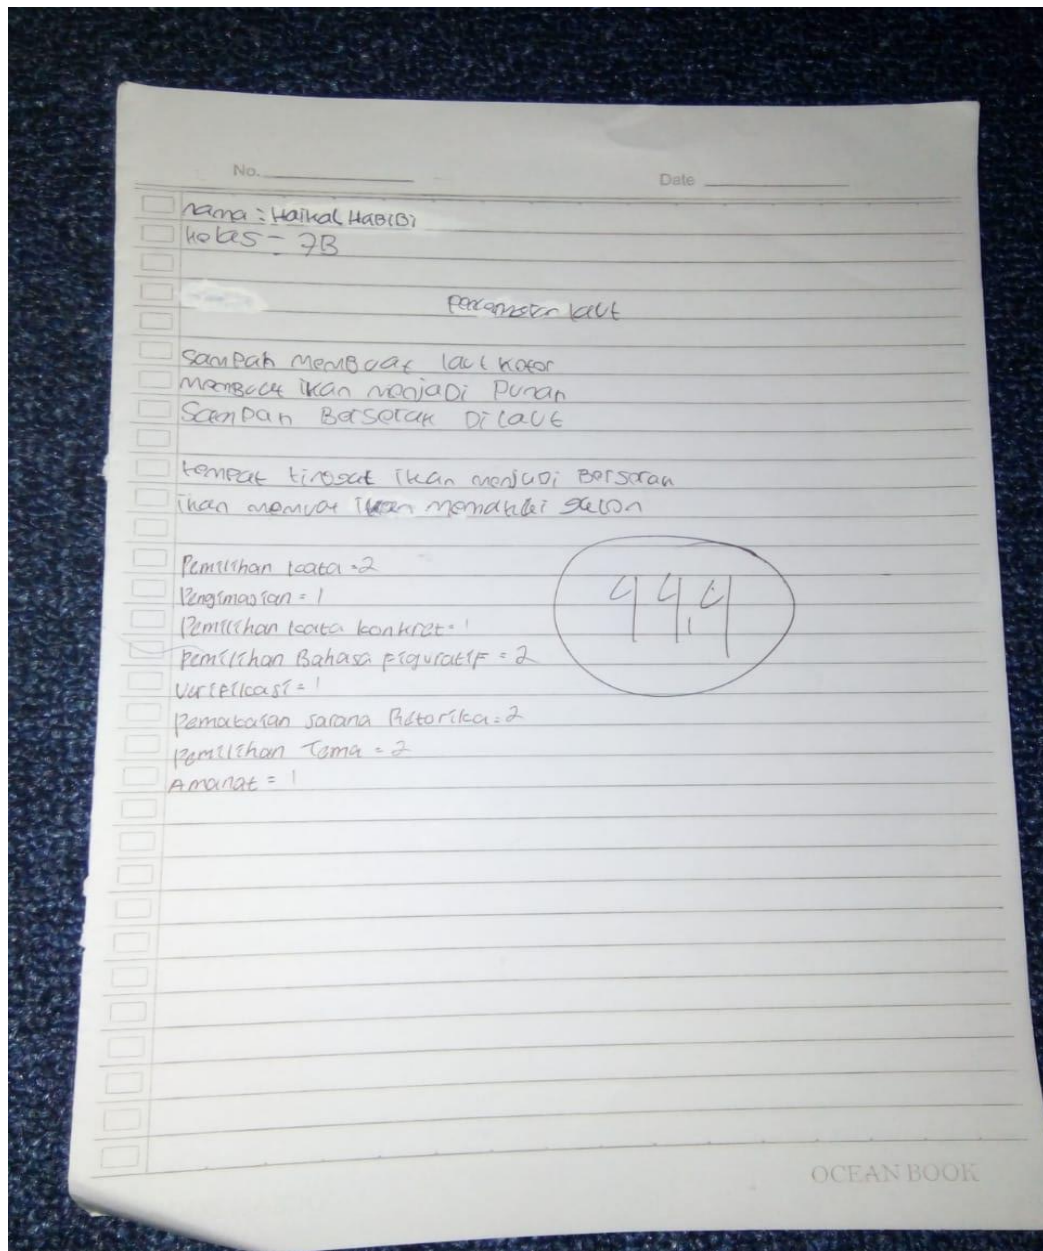 No.
Date
nama : Haikal HaBiBi
kelas = 7B
laut
SamPah MemBuat laut kotor
MemBuat ikan menjaDi Punah
SamPah Berserak Di laut
temPat tinggal ikan menjaDi Berserak
ikan ikan
Pemilihan kata = 2
Pengimajian = 1
Pemilihan kata konkret = 1
Pemilihan Bahasa Figuratif = 2
Verifikasi = 1
Pemakaian sarana Retorika = 2
Pemilihan Tema = 2
Amanat = 1
44,4
OCEAN BOOK